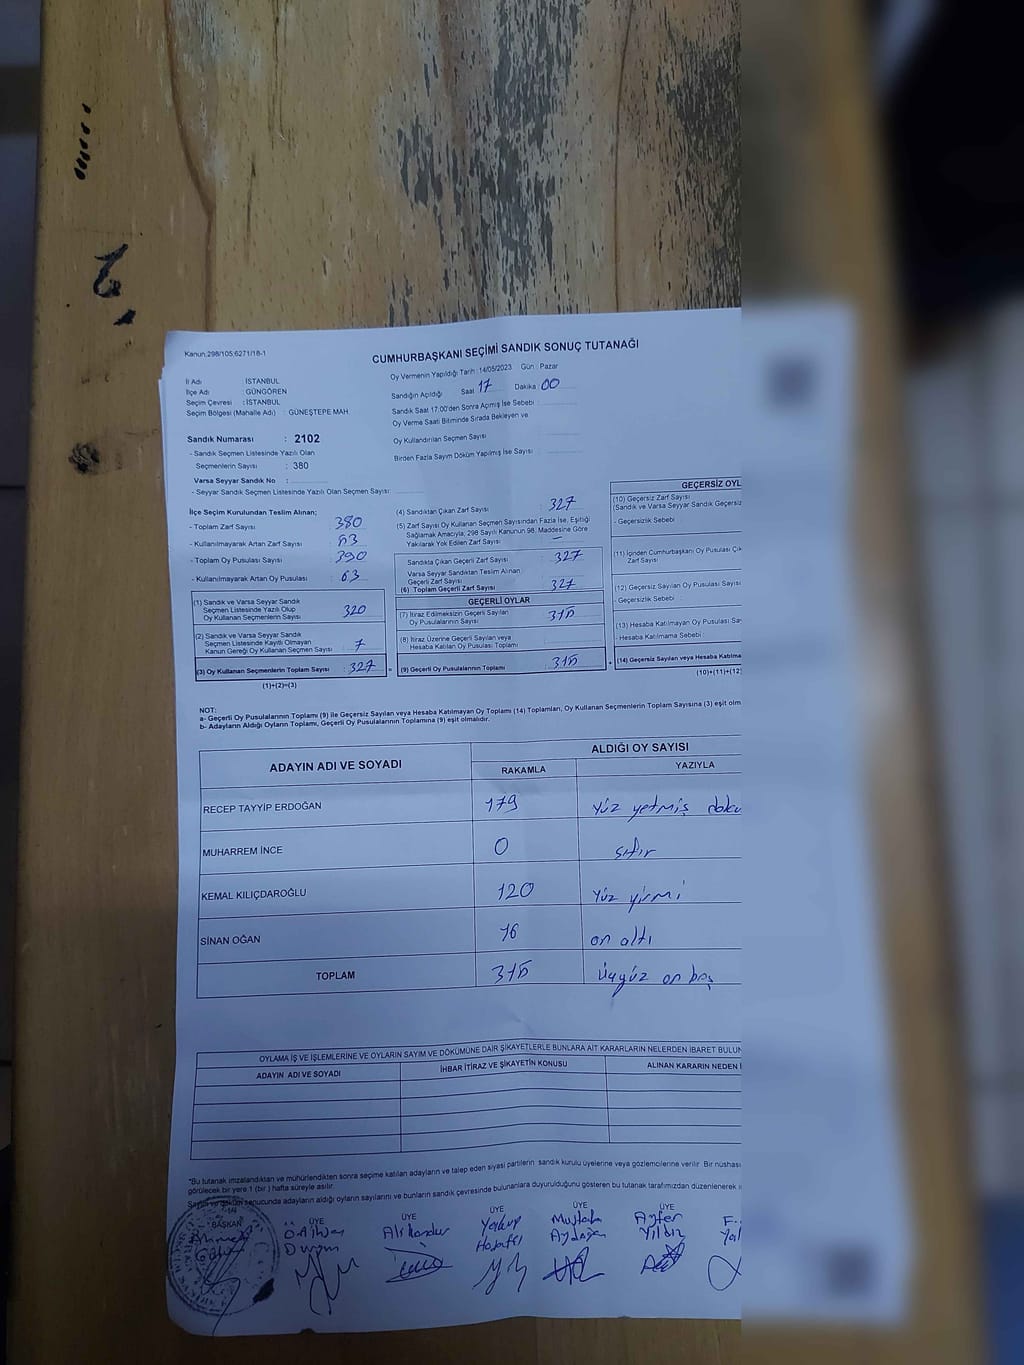 Kanun:298/105;6271/18-1
CUMHURBAŞKANI SEÇİMİ SANDIK SONUÇ TUTANAĞI
İl Adı : İSTANBUL
İlçe Adı : GÜNGÖREN
Seçim Çevresi : İSTANBUL
Seçim Bölgesi (Mahalle Adı) : GÜNEŞTEPE MAH
Sandık Numarası : 2102
- Sandık Seçmen Listesinde Yazılı Olan
Seçmenlerin Sayısı : 380
Varsa Seyyar Sandık No :
- Seyyar Sandık Seçmen Listesinde Yazılı Olan Seçmen Sayısı:
Oy Vermenin Yapıldığı Tarih :14/05/2023 Gün : Pazar
Sandığın Açıldığı Saat 17 Dakika 00
Sandık Saat 17:00'den Sonra Açmış İse Sebebi :
Oy Verme Saati Bitiminde Sırada Bekleyen ve
Oy Kullandırılan Seçmen Sayısı :
Birden Fazla Sayım Döküm Yapılmış İse Sayısı :
İlçe Seçim Kurulundan Teslim Alınan;
- Toplam Zarf Sayısı : 380
- Kullanılmayarak Artan Zarf Sayısı : 53
- Toplam Oy Pusulası Sayısı : 390
- Kullanılmayarak Artan Oy Pusulası : 63
(1) Sandık ve Varsa Seyyar Sandık
Seçmen Listesinde Yazılı Olup
Oy Kullanan Seçmenlerin Sayısı : 320
(2) Sandık ve Varsa Seyyar Sandık
Seçmen Listesinde Kayıtlı Olmayan
Kanun Gereği Oy Kullanan Seçmen Sayısı : 7
(3) Oy Kullanan Seçmenlerin Toplam Sayısı : 327
(1)+(2)=(3)
(4) Sandıktan Çıkan Zarf Sayısı : 327
(5) Zarf Sayısı Oy Kullanan Seçmen Sayısından Fazla İse, Eşitliği
Sağlamak Amacıyla; 298 Sayılı Kanunun 98. Maddesine Göre
Yakılarak Yok Edilen Zarf Sayısı : –
Sandıkta Çıkan Geçerli Zarf Sayısı : 327
Varsa Seyyar Sandıktan Teslim Alınan
Geçerli Zarf Sayısı :
(6) Toplam Geçerli Zarf Sayısı : 327
GEÇERLİ OYLAR
(7) İtiraz Edilmeksizin Geçerli Sayılan
Oy Pusulasının Sayısı : 315
(8) İtiraz Üzerine Geçerli Sayılan veya
Hesaba Katılan Oy Pusulası Toplamı :
(9) Geçerli Oy Pusulalarının Toplamı : 315
GEÇERSİZ OYL
(10) Geçersiz Zarf Sayısı
(Sandık ve Varsa Seyyar Sandık Geçersiz
- Geçersizlik Sebebi
(11) İçinden Cumhurbaşkanı Oy Pusulası Çık
Zarf Sayısı
(12) Geçersiz Sayılan Oy Pusulası Sayısı
- Geçersizlik Sebebi :
(13) Hesaba Katılmayan Oy Pusulası Say
- Hesaba Katılmama Sebebi :
(14) Geçersiz Sayılan veya Hesaba Katılma
(10)+(11)+(12)
NOT:
a- Geçerli Oy Pusulalarının Toplamı (9) ile Geçersiz Sayılan veya Hesaba Katılmayan Oy Toplamı (14) Toplamları, Oy Kullanan Seçmenlerin Toplam Sayısına (3) eşit olm
b- Adayların Aldığı Oyların Toplamı, Geçerli Oy Pusulalarının Toplamına (9) eşit olmalıdır.
ADAYIN ADI VE SOYADI
ALDIĞI OY SAYISI
RAKAMLA YAZIYLA
RECEP TAYYİP ERDOĞAN 179 Yüz yetmiş doku
MUHARREM İNCE 0 sıfır
KEMAL KILIÇDAROĞLU 120 Yüz yirmi
SİNAN OĞAN 16 on altı
TOPLAM 315 üçyüz on beş
OYLAMA İŞ VE İŞLEMLERİNE VE OYLARIN SAYIM VE DÖKÜMÜNE DAİR ŞİKAYETLERLE BUNLARA AİT KARARLARIN NELERDEN İBARET BULUN
ADAYIN ADI VE SOYADI İHBAR İTİRAZ VE ŞİKAYETİN KONUSU ALINAN KARARIN NEDEN İ
*Bu tutanak imzalandıktan ve mühürlendikten sonra seçime katılan adayların ve talep eden siyasi partilerin sandık kurulu üyelerine veya gözlemcilerine verilir. Bir nüshası
görülecek bir yere 1 (bir) hafta süreyle asılır.
Sayım ve döküm sonucunda adayların aldığı oyların sayılarını ve bunların sandık çevresinde bulunanlara duyurulduğunu gösteren bu tutanak tarafımızdan düzenlenerek i
BAŞKAN ÜYE ÜYE ÜYE ÜYE ÜYE
Ahmet Yakup Mustafa Ayfer
Aydoğan Yıldız